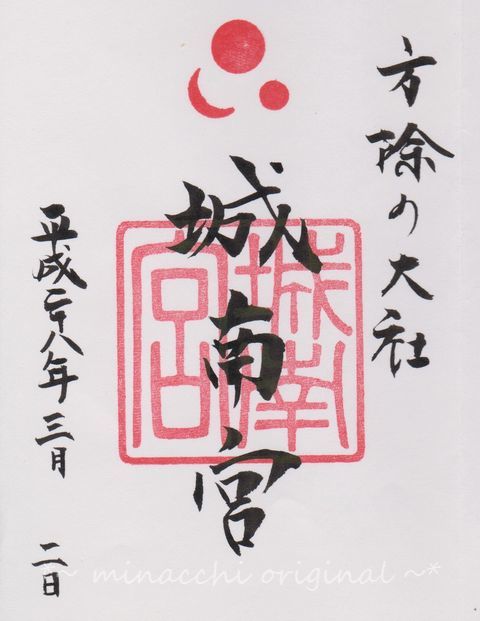 方除の大社
城南宮
城南宮
平成二十八年三月 二日
~ minacchi original ~*